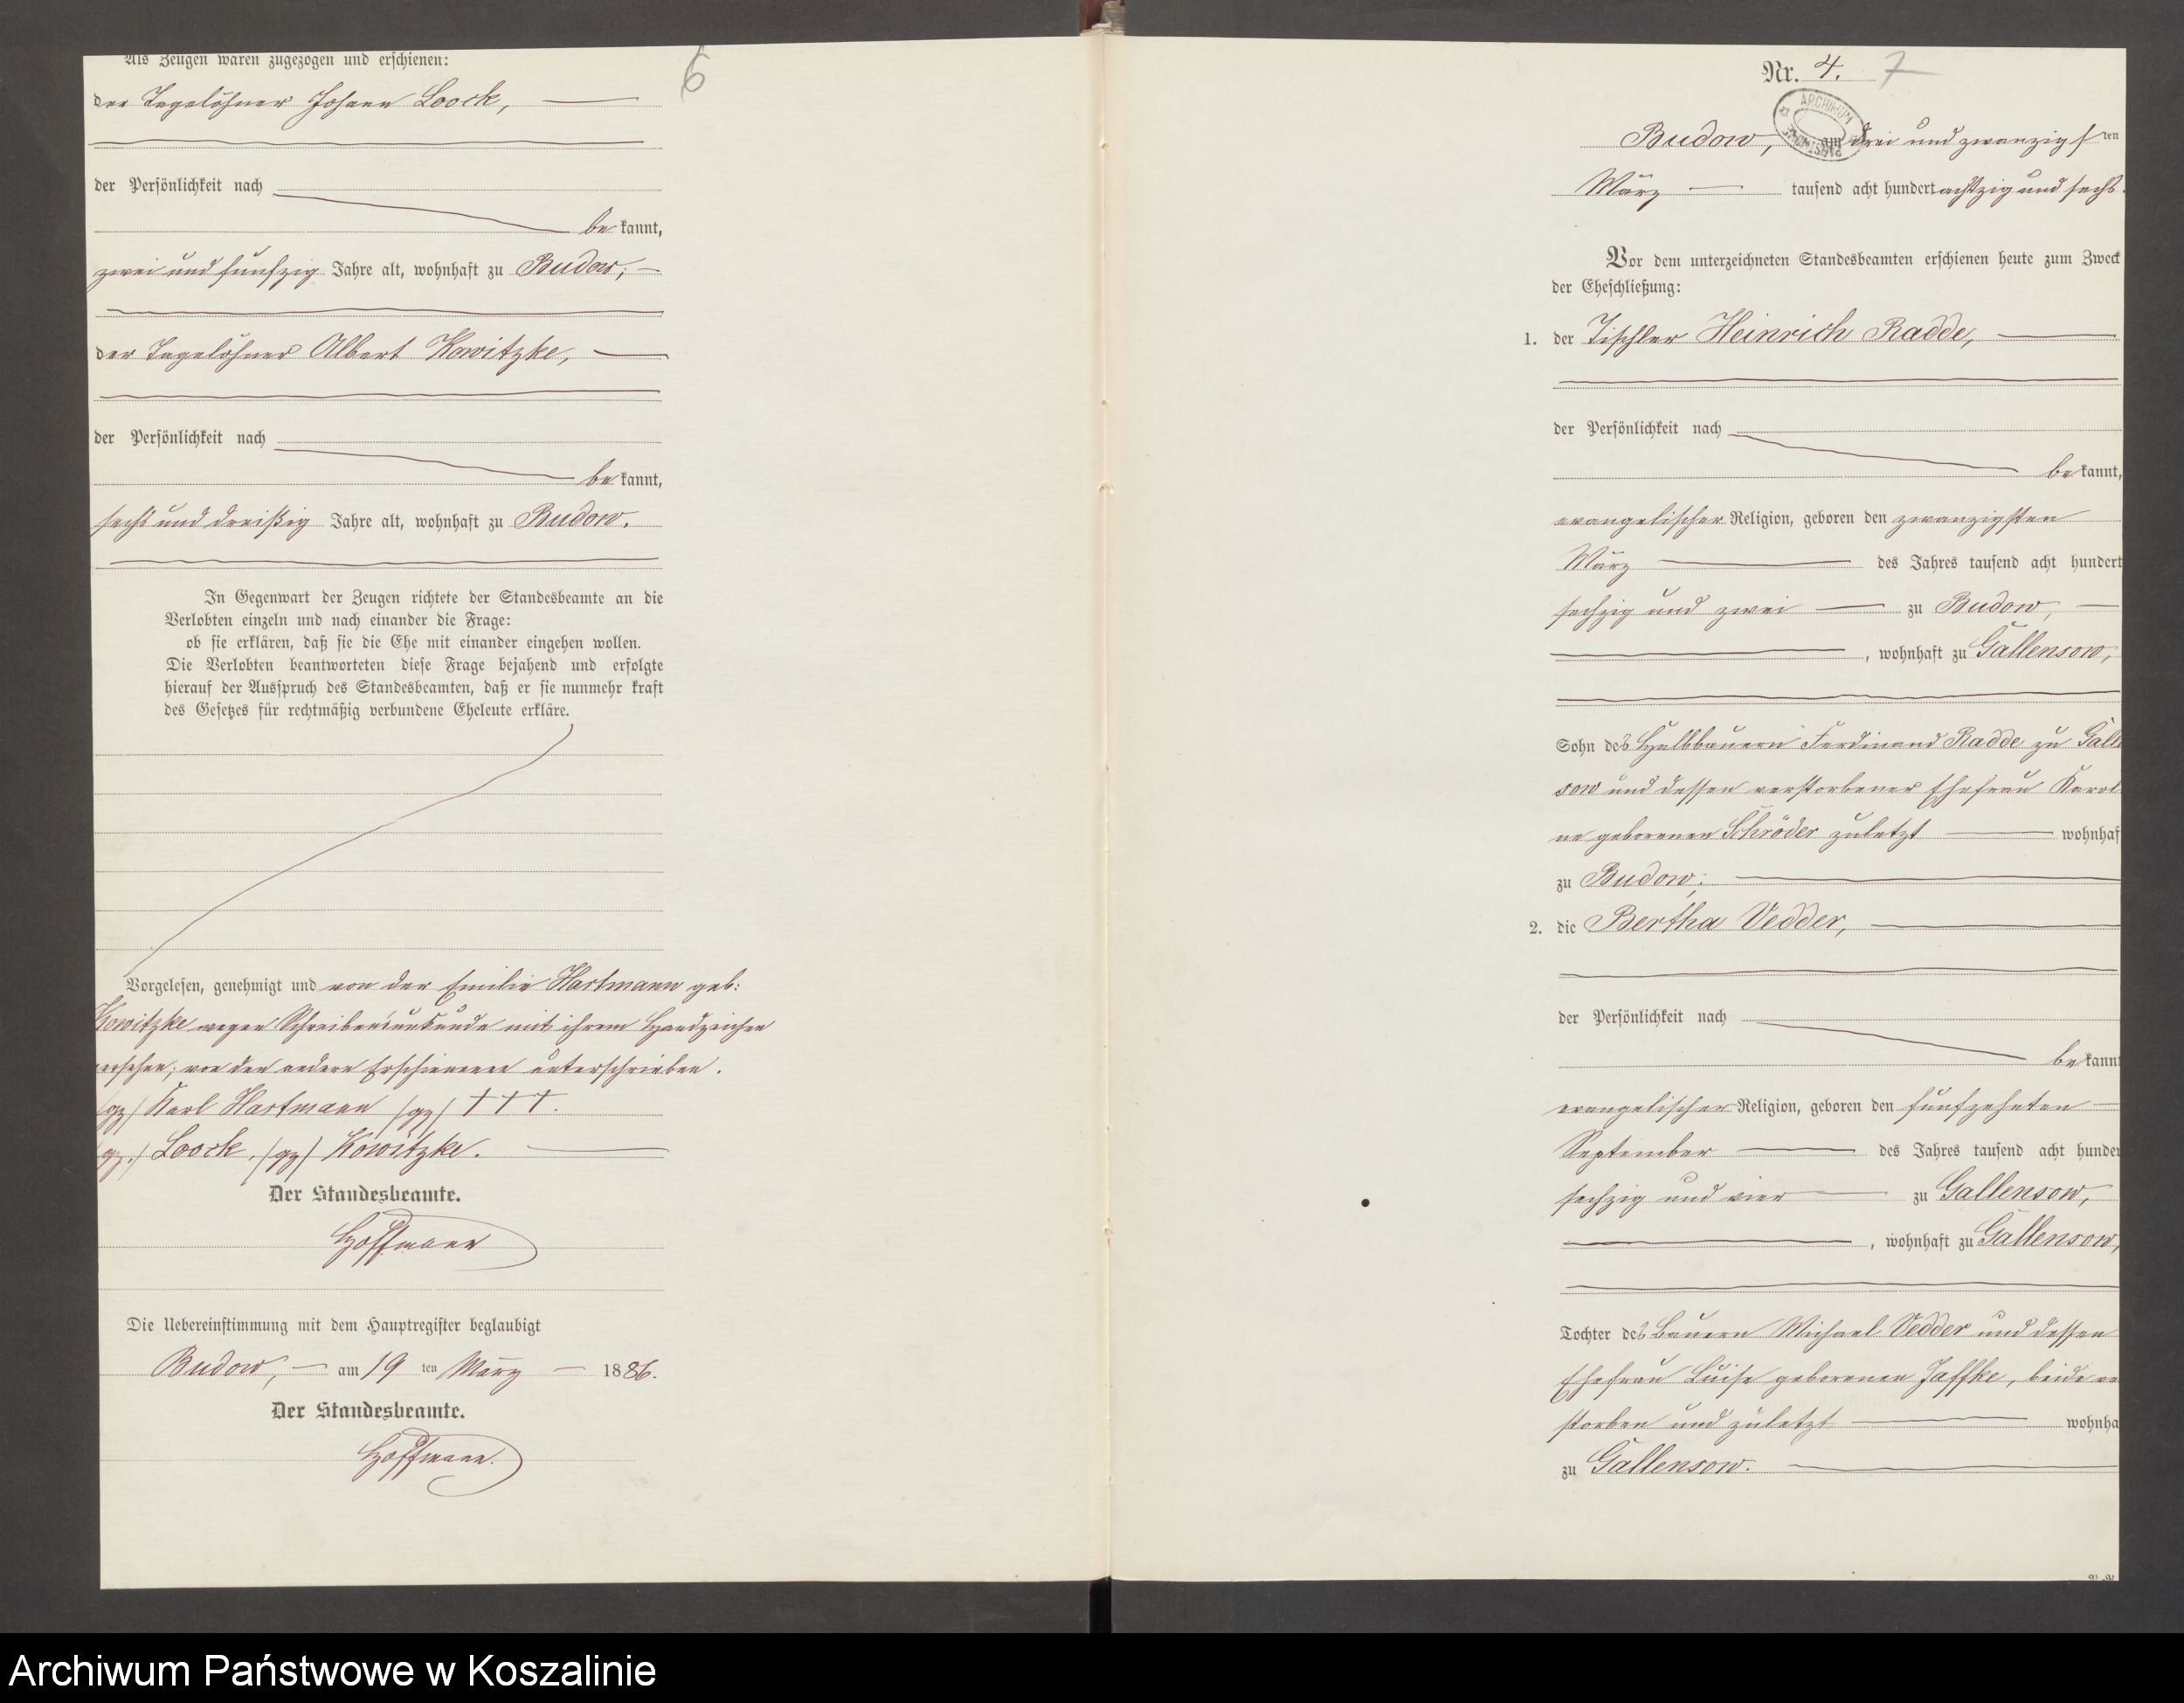 Als Zeugen waren zugezogen und erschienen:
6
der Tagelöhner Johann Loock,
der Persönlichkeit nach
be kannt,
zwei und fünfzig Jahre alt, wohnhaft zu Budow;
der Tagelöhner Albert Kowitzke,
der Persönlichkeit nach
be kannt,
sechs und dreißig Jahre alt, wohnhaft zu Budow.
In Gegenwart der Zeugen richtete der Standesbeamte an die
Verlobten einzeln und nach einander die Frage:
ob sie erklären, daß sie die Ehe mit einander eingehen wollen.
Die Verlobten beantworteten diese Frage bejahend und erfolgte
hierauf der Ausspruch des Standesbeamten, daß er sie nunmehr kraft
des Gesetzes für rechtmäßig verbundene Eheleute erkläre.
Vorgelesen, genehmigt und von der Emilie Hartmann geb:
Kowitzke wegen Schreibensunkunde mit ihrem Handzeichen
versehen; von den andern Erschienenen unterschrieben.
(gz) Karl Hartmann (gz) +++.
(gz.) Loock, (gz) Kowitzke.
Der Standesbeamte.
Hoffmann
Die Uebereinstimmung mit dem Hauptregister beglaubigt
Budow, am 19 ten März 1886.
Der Standesbeamte.
Hoffmann.
Nr. 4. 7
ARCHIWUM
Budow, am drei und zwanzigsten
März tausend acht hundert achtzig und sechs.
Vor dem unterzeichneten Standesbeamten erschienen heute zum Zweck
der Eheschließung:
1. der Tischler Heinrich Radde,
der Persönlichkeit nach
be kannt,
evangelischer Religion, geboren den zwanzigsten
März des Jahres tausend acht hundert
sechzig und zwei zu Budow,
, wohnhaft zu Gallensow,
Sohn des Halbbauern Ferdinand Radde zu Galle
sow und dessen verstorbener Ehefrau Karoli
ne geborenen Schröder zuletzt wohnhaf
zu Budow;
2. die Bertha Vedder,
der Persönlichkeit nach
be kannt
evangelischer Religion, geboren den fünfzehnten
September des Jahres tausend acht hunder
sechzig und vier zu Gallensow,
, wohnhaft zu Gallensow,
Tochter des Bauern Michael Vedder und dessen
Ehefrau Luise geborenen Jaffke, beide ve
storben und zuletzt wohnha
zu Gallensow.
Archiwum Państwowe w Koszalinie